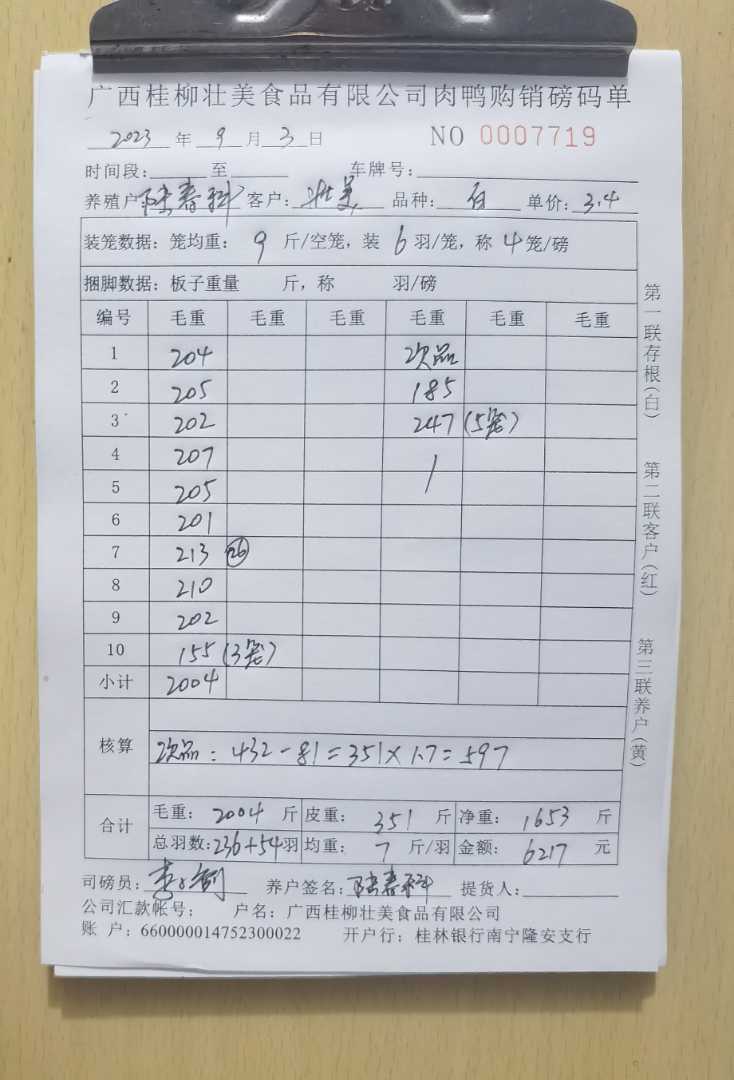 广西桂柳壮美食品有限公司肉鸭购销磅码单
2023 年 9 月 3 日 NO 0007719
时间段: 至 车牌号:
养殖户: 陆春科 客户: 壮美 品种: 白 单价: 3.4
装笼数据: 笼均重: 9 斤/空笼, 装 6 羽/笼, 称 4 笼/磅
捆脚数据: 板子重量 斤, 称 羽/磅
编号 毛重 毛重 毛重 毛重 毛重 毛重
1 204 次品
2 205 185
3 202 247 (5笼)
4 207
5 205
6 201
7 213 26
8 210
9 202
10 155 (3笼)
小计 2004
核算 次品: 432-81=351×1.7=597
合计 毛重: 2004 斤 皮重: 351 斤 净重: 1653 斤
总羽数: 236+54 羽 均重: 7 斤/羽 金额: 6217 元
司磅员: 养户签名: 陆春科 提货人:
公司汇款帐号: 户名: 广西桂柳壮美食品有限公司
账 户: 660000014752300022 开户行: 桂林银行南宁隆安支行
第一联存根(白)
第二联客户(红)
第三联养户(黄)